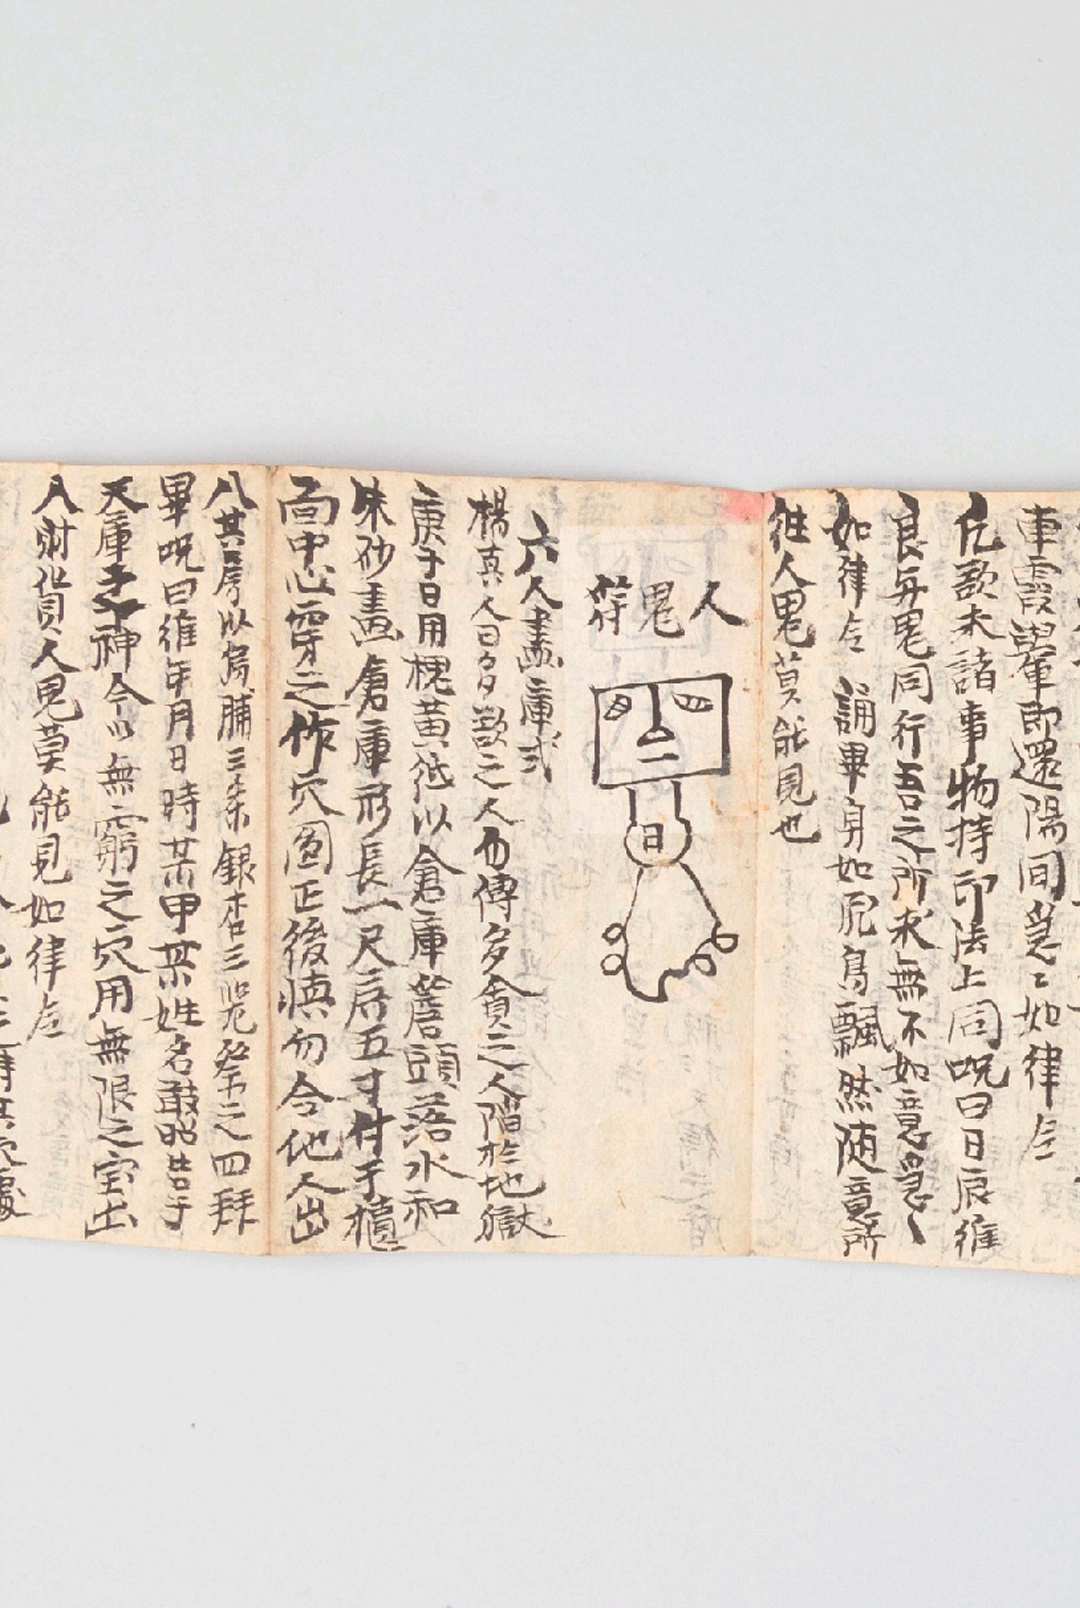 車霞輦即還陽間急〻如律令
凡欲未諸事物持印法上同呪曰日辰維
良与鬼同行吾之所求無不如意急〻
如律令 誦畢身如飛鳥飄然随意所
往人鬼莫能見也
人鬼符
日
六人盡庫式
楊真人曰多欲之人勿傳多貪之人階於地獄
庚子日用槐黄紙以倉庫簷頭落水和
朱砂畫倉庫形長一尺廣五寸付于樻
面中心穿之作穴圓正後慎勿令他人出
入其房以烏脯三条銀杏三㼌祭之四拜
畢呪曰維年月日時某甲某姓名敢昭告于
天庫之神今以無窮之穴用無限之宝出
入財貨人鬼莫能見如律令